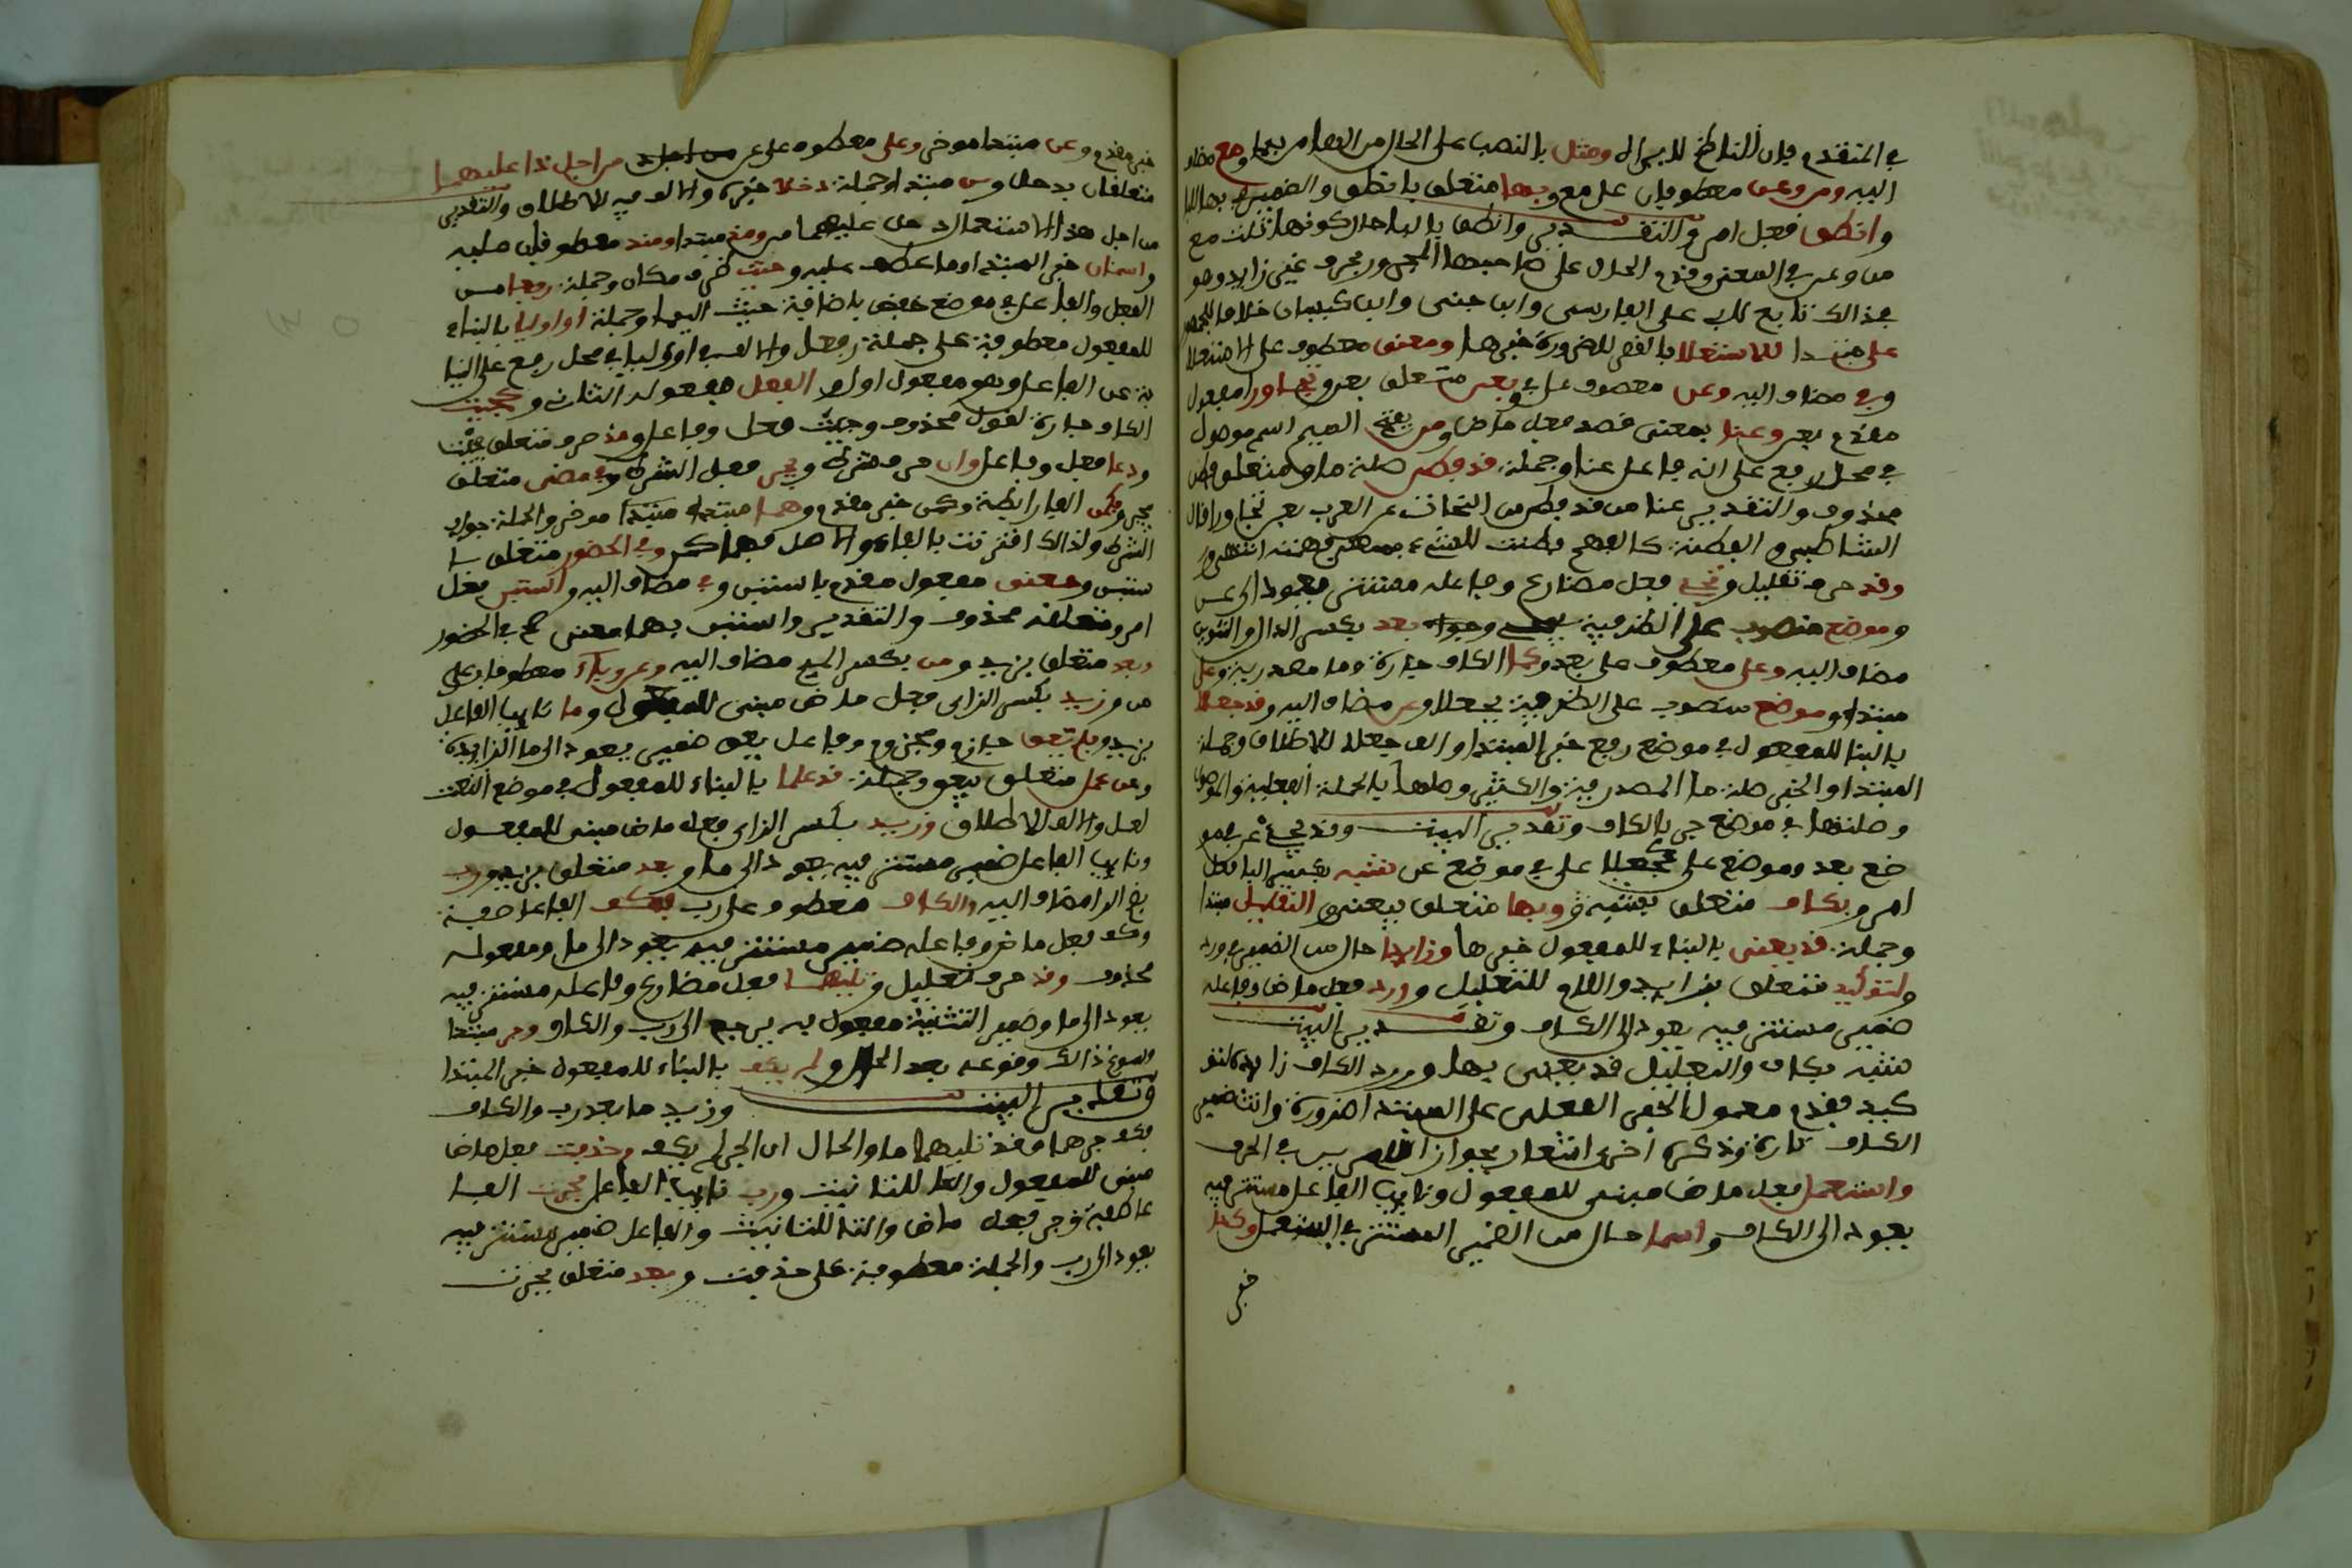 في المتقدم فإن الناظم لا يراه ومثل بالنصب على الحال من الهاء من بها ومع مضاف
اليه ومن وعن معطوفان على مع وبها متعلق بانطق والضمير في بها للبا
وانطق فعل امر والتقدير وانطق بالبا حال كونها مثل مع
من وعن في المعنى وقدم الحال على صاحبها المجرور بحرف غير زايد وهو
في ذالك تابع لابي علي الفارسي وابن جني وابن كيسان خلافا للجمهور
على مبتدا للاستعلا بالقصر للضرورة خبرها ومعنى معطوف على الاستعلا
وفي مضاف اليه وعن معطوف على في وبعن متعلق بعنى وتجاوزا مفعول
مقدم بعنى وعنا بمعنى قصد فعل ماض ومن بفتح الميم اسم موصول
في محل رفع على انه فاعل عنا وجملة قد فطن صلة من ومتعلق فطن
محذوف والتقدير عنا من قد فطن من النحات عن العرب بعن تجاوزا قال
الشاطبي والفطنة كالفهم فطنت للشيء بمعنى فهمته انتهى و
وقد حرف تقليل وتجي فعل مضارع وفاعله مستتر فيه يعود الى عن
وموضع منصوب على الظرفية بتجي وبعد بكسر الدال والتنوين
مضاف اليه وعلى معطوف على بعد وكما الكاف جارة وما مصدرية وعلى
مبتدا وموضع منصوب على الظرفية بجعلا وعن مضاف اليه وقد جعلا
بالبنا للمفعول في موضع رفع خبر المبتدا والف جعلا للاطلاق وجملة
المبتدا والخبر صلة ما المصدرية والكثير وصلها بالجملة الفعلية والموصول
وصلتها في موضع جر بالكاف وتقدير البيت وقد تجيء عن في مو
ضع بعد وموضع على كجعل على في موضع عن شبه بكسر البا فعل
امر وبكاف متعلق بشبه وبها متعلق بيعنى والتعليل مبتدا
وجملة قد يعنى بالبناء للمفعول خبرها وزايدا حال من الضمير في ورد
ولتوكيد متعلق بزايد واللام للتعليل وورد فعل ماض وفاعله
ضمير مستتر فيه يعود الى الكاف وتقدير البيت
شبه بكاف والتعليل قد يعنى بها وورد الكاف زايدا لتو
كيد فقدم معمول الخبر الفعلي على المبتدا ضرورة وانث ضمير
الكاف تارة وذكره اخرى اشعار بجواز الامرين في الحرف
واستعمل فعل ماض مبني للمفعول ونايب الفاعل مستتر فيه
يعود الى الكاف واسما حال من الضمير المستتر في استعمل وكذا
خبر
خبر مقدم وعن مبتدا موخر وعلى معطوف على عن من اجل ذا عليهما
متعلقان بدخلا ومن مبتدا وجملة دخلا خبره والالف فيه للاطلاق والتقدير
من اجل هذا الاستعمال دخل عليهما من ومذ مبتدا ومنذ معطوف عليه
واسمان خبر المبتدا وما عطف عليه وحيث ظرف مكان وجملة رفعا من
الفعل والفاعل في موضع خفض باضافة حيث اليها وجملة او اوليا بالبناء
للمفعول معطوفة على جملة رفعا والالف في اوليا في محل رفع على النيا
بة عن الفاعل وهو مفعول اول والفعل مفعوله الثاني وكجئت
الكاف جارة لقول محذوف وجئت فعل وفاعل ومذ حرف متعلق بجئت
ودعا فعل وفاعل وان حرف شرط ويجرا فعل الشرط وفي مضي متعلق
بيجرا وفكمن الفا رابطة وكمن خبر مقدم وهما مبتدا موخر والجملة جواب
الشرط ولذالك اقترنت بالفاء والاصل فهما كمن وفي الحضور متعلق با
ستبن ومعنى مفعول مقدم باستبن وفي مضاف اليه واستبن فعل
امر ومتعلقه محذوف والتقدير واستبن بهما معنى في في الحضور
وبعد متعلق بزيد ومن بكسر الميم مضاف اليه وعن وباء معطوفان على
من وزيد بكسر الزاى فعل ماض مبني للمفعول وما نايب الفاعل
بزيد ولم يعق جازم ومجزوم وفاعل يعق ضمير يعود الى ما الزايدة
وعن عمل متعلق بيعق وجملة قد علما بالبناء للمفعول في موضع النعت
لعمل والالف للاطلاق وزيد بكسر الزاى فعل ماض مبني للمفعول
ونايب الفاعل ضمير مستتر فيه يعود الى ما وبعد متعلق بزيد ورب
بضم الرا مضاف اليه والكاف معطوف على رب فكف الفا عاطفة
وكف فعل ماض وفاعله ضمير مستتر فيه يعود الى ما ومفعوله
محذوف وقد حرف تعليل وتليهما فعل مضارع وفاعله مستتر فيه
يعود الى ما وضمير التثنية مفعول به يرجع الى رب والكاف وجر مبتدا
وسوغ ذالك وقوعه بعد الحال ولم يكف بالبناء للمفعول خبر المبتدا
وتقدير البيت وزيد ما بعد رب والكاف
فكف جرهما وقد تليهما ما والحال ان الجر لم يكف وحذفت فعل ماض
مبني للمفعول والتا للتانيث ورب نايب الفاعل فجرت الفا
عاطفة وجر فعل ماض والتا للتانيث والفاعل ضمير مستتر فيه
يعود الى رب والجملة معطوفة على حذفت وبعد متعلق بجرت